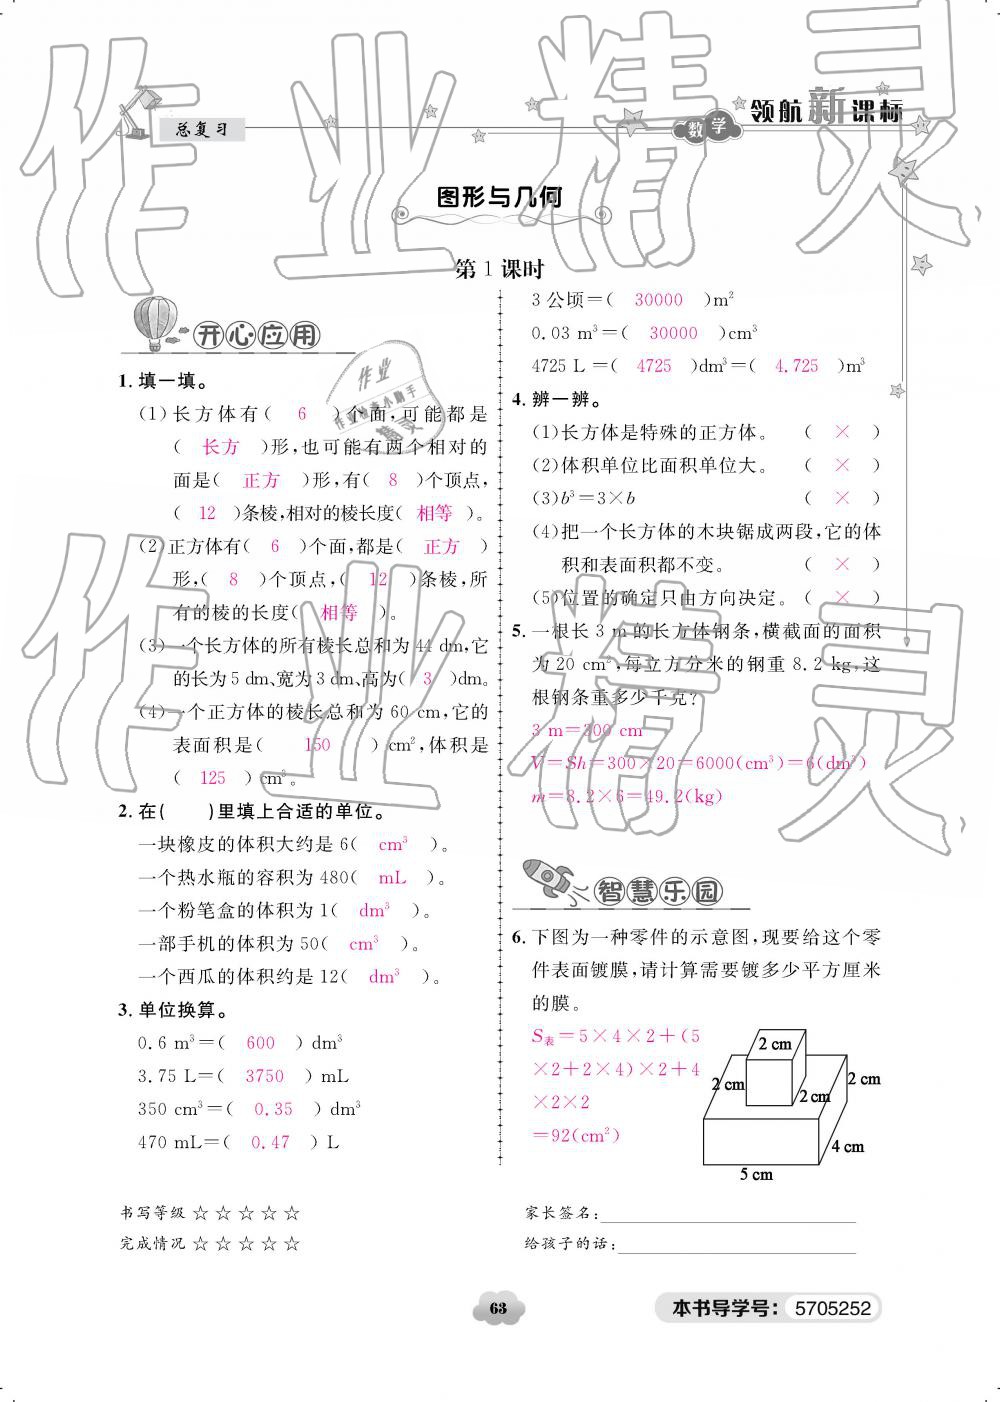 总复习
数学 领航新课标
图形与几何
第1课时
开心应用
1. 填一填。
(1)长方体有( 6 )个面,可能都是
( 长方 )形,也可能有两个相对的
面是( 正方 )形,有( 8 )个顶点,
( 12 )条棱,相对的棱长度( 相等 )。
(2)正方体有( 6 )个面,都是( 正方 )
形,( 8 )个顶点,( 12 )条棱,所
有的棱的长度( 相等 )。
(3)一个长方体的所有棱长总和为44 dm,它
的长为5 dm、宽为3 dm、高为( 3 )dm。
(4)一个正方体的棱长总和为60 cm,它的
表面积是( 150 )cm²,体积是
( 125 )cm³。
2. 在( )里填上合适的单位。
一块橡皮的体积大约是6( cm³ )。
一个热水瓶的容积为480( mL )。
一个粉笔盒的体积为1( dm³ )。
一部手机的体积为50( cm³ )。
一个西瓜的体积约是12( dm³ )。
3. 单位换算。
0.6 m³=( 600 )dm³
3.75 L=( 3750 )mL
350 cm³=( 0.35 )dm³
470 mL=( 0.47 )L
3公顷=( 30000 )m²
0.03 m³=( 30000 )cm³
4725 L=( 4725 )dm³=( 4.725 )m³
4. 辨一辨。
(1)长方体是特殊的正方体。 ( × )
(2)体积单位比面积单位大。 ( × )
(3)b³=3×b ( × )
(4)把一个长方体的木块锯成两段,它的体
积和表面积都不变。 ( × )
(5)位置的确定只由方向决定。 ( × )
5. 一根长3 m的长方体钢条,横截面的面积
为20 cm²,每立方分米的钢重8.2 kg,这
根钢条重多少千克?
3 m=300 cm
V=Sh=300×20=6000(cm³)=6(dm³)
m=8.2×6=49.2(kg)
智慧乐园
6. 下图为一种零件的示意图,现要给这个零
件表面镀膜,请计算需要镀多少平方厘米
的膜。
S表=5×4×2+(5
×2+2×4)×2+4
×2×2
=92(cm²)
2 cm
2 cm
2 cm
2 cm
4 cm
5 cm
书写等级 ☆ ☆ ☆ ☆ ☆
完成情况 ☆ ☆ ☆ ☆ ☆
家长签名:
给孩子的话:
63
本书导学号: 5705252
作业精灵
作业精灵
作业
作业检查小助手
精灵